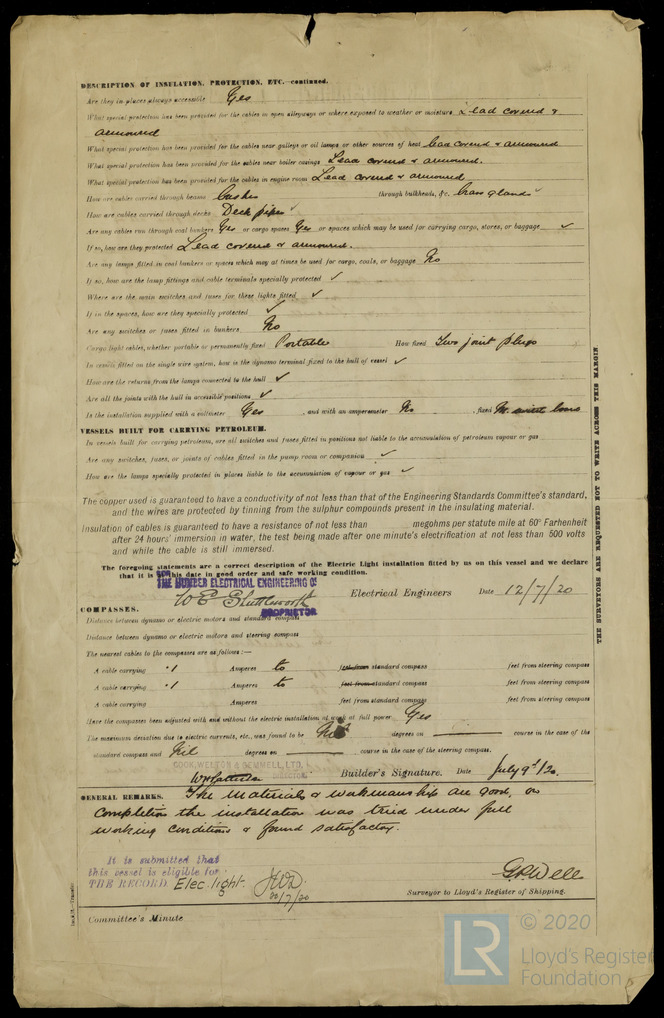 DESCRIPTION OF INSULATION, PROTECTION, ETC.—continued.
Are they in places always accessible Yes
What special protection has been provided for the cables in open alleyways or where exposed to weather or moisture Lead covered &
armoured
What special protection has been provided for the cables near galleys or oil lamps or other sources of heat lead covered & armoured
What special protection has been provided for the cables near boiler casings Lead covered & armoured.
What special protection has been provided for the cables in engine room Lead covered & armoured
How are cables carried through beams bushes through bulkheads, &c. brass glands ✓
How are cables carried through decks Deck pipes ✓
Are any cables run through coal bunkers Yes or cargo spaces Yes or spaces which may be used for carrying cargo, stores, or baggage ✓
If so, how are they protected Lead covered & armoured.
Are any lamps fitted in coal bunkers or spaces which may at times be used for cargo, coals, or baggage No
If so, how are the lamp fittings and cable terminals specially protected ✓
Where are the main switches and fuses for these lights fitted ✓
If in the spaces, how are they specially protected ✓
Are any switches or fuses fitted in bunkers No
Cargo light cables, whether portable or permanently fixed Portable How fixed Two joint plugs
In vessels fitted on the single wire system, how is the dynamo terminal fixed to the hull of vessel ✓
How are the returns from the lamps connected to the hull ✓
Are all the joints with the hull in accessible positions ✓
Is the installation supplied with a voltmeter Yes , and with an amperemeter No , fixed
VESSELS BUILT FOR CARRYING PETROLEUM.
In vessels built for carrying petroleum, are all switches and fuses fitted in positions not liable to the accumulation of petroleum vapour or gas
Are any switches, fuses, or joints of cables fitted in the pump room or companion ✓
How are the lamps specially protected in places liable to the accumulation of vapour or gas ✓
The copper used is guaranteed to have a conductivity of not less than that of the Engineering Standards Committee's standard,
and the wires are protected by tinning from the sulphur compounds present in the insulating material.
Insulation of cables is guaranteed to have a resistance of not less than megohms per statute mile at 60° Farhenheit
after 24 hours' immersion in water, the test being made after one minute's electrification at not less than 500 volts
and while the cable is still immersed.
The foregoing statements are a correct description of the Electric Light installation fitted by us on this vessel and we declare
that it is this date in good order and safe working condition.
FOR
THE HUMBER ELECTRICAL ENGINEERING Co
W E Shuttleworth Electrical Engineers Date 12/7/20
PROPRIETOR
COMPASSES.
Distance between dynamo or electric motors and standard compass
Distance between dynamo or electric motors and steering compass
The nearest cables to the compasses are as follows:—
A cable carrying .1 Amperes to feet from standard compass feet from steering compass
A cable carrying .1 Amperes to feet from standard compass feet from steering compass
A cable carrying Amperes feet from standard compass feet from steering compass
Have the compasses been adjusted with and without the electric installation at work at full power Yes
The maximum deviation due to electric currents, etc., was found to be Nil degrees on course in the case of the
standard compass and Nil degrees on course in the case of the steering compass.
COOK, WELTON & GEMMELL, LTD.
DIRECTOR
Builder's Signature. Date July 9th/20.
GENERAL REMARKS. The materials & workmanship are good, on
completion the installation was tried under full
working conditions & found satisfactory.
It is submitted that
this vessel is eligible for
THE RECORD Elec. light. JWD
12/7/20
Surveyor to Lloyd's Register of Shipping.
Committee's Minute
THE SURVEYORS ARE REQUESTED NOT TO WRITE ACROSS THIS MARGIN
LR © 2020
Lloyd's Register
Foundation